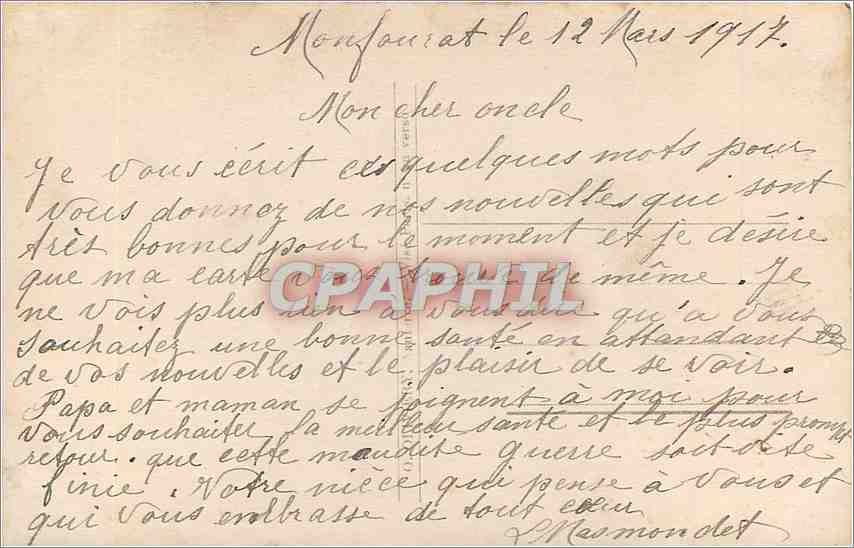 Monfourat le 12 Mars 1917.
Mon cher oncle
Je vous écrit ces quelques mots pour
vous donnez de nos nouvelles qui sont
très bonnes pour le moment et je désire
que ma carte vous trouve de même. Je
ne vois plus rien a vous dire qu'a vous
souhaitez une bonne santé en attandant
de vos nouvelles et le plaisir de se voir.
Papa et maman se joignent à moi pour
vous souhaiter la meilleur santé et le plus prompt
retour. que cette maudite guerre soit vite
finie. Votre nièce qui pense à vous et
qui vous embrasse de tout cœur
L Masmondet
CPAPHIL